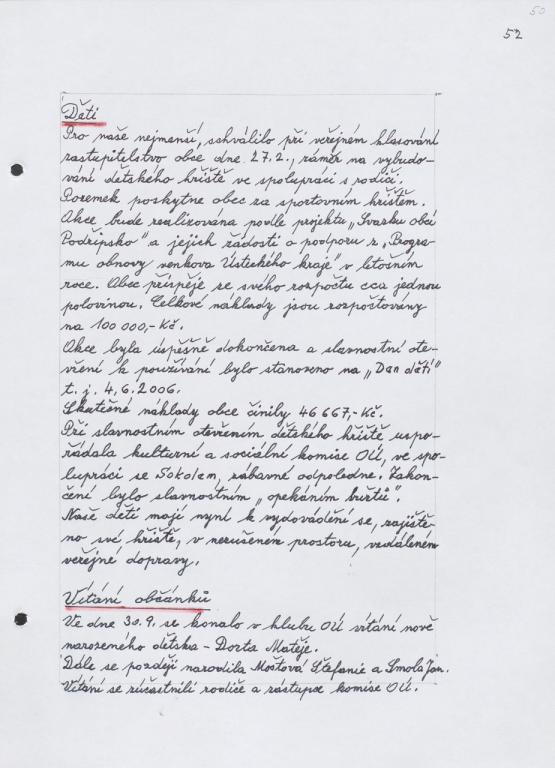 50
52
Děti
Pro naše nejmenší, schválilo při veřejném hlasování
zastupitelstvo obce dne 27.2., záměr na vybudo-
vání dětského hřiště ve spolupráci s rodiči.
Pozemek poskytne obec za sportovním hřištěm.
Akce bude realizována podle projektu „Svazku obcí
Podřipsko" a jejich žádosti o podporu z „Progra-
mu obnovy venkova Ústeckého kraje" v letošním
roce. Obec přispěje ze svého rozpočtu cca jednou
polovinou. Celkové náklady jsou rozpočtovány
na 100 000,- Kč.
Akce byla úspěšně dokončena a slavnostní ote-
vření k používání bylo stanoveno na „Den dětí"
t. j. 4.6.2006.
Skutečné náklady obce činily 46 667,- Kč.
Při slavnostním otevřením dětského hřiště uspo-
řádala kulturní a sociální komise OÚ, ve spo-
lupráci se Sokolem, zábavné odpoledne. Zakon-
čení bylo slavnostním „opékáním buřtů".
Naše děti mají nyní k vydovádění se, zajiště-
no své hřiště, v nerušeném prostoru, vzdáleném
veřejné dopravy.
Vítání občánků
Ve dne 30.9. se konalo v klubu OÚ vítání nově
narozeného děťska - Dorta Matěje.
Dále se později narodila Moštová Štefanie a Smola Jan.
Vítání se zúčastnili rodiče a zástupce komise OÚ.